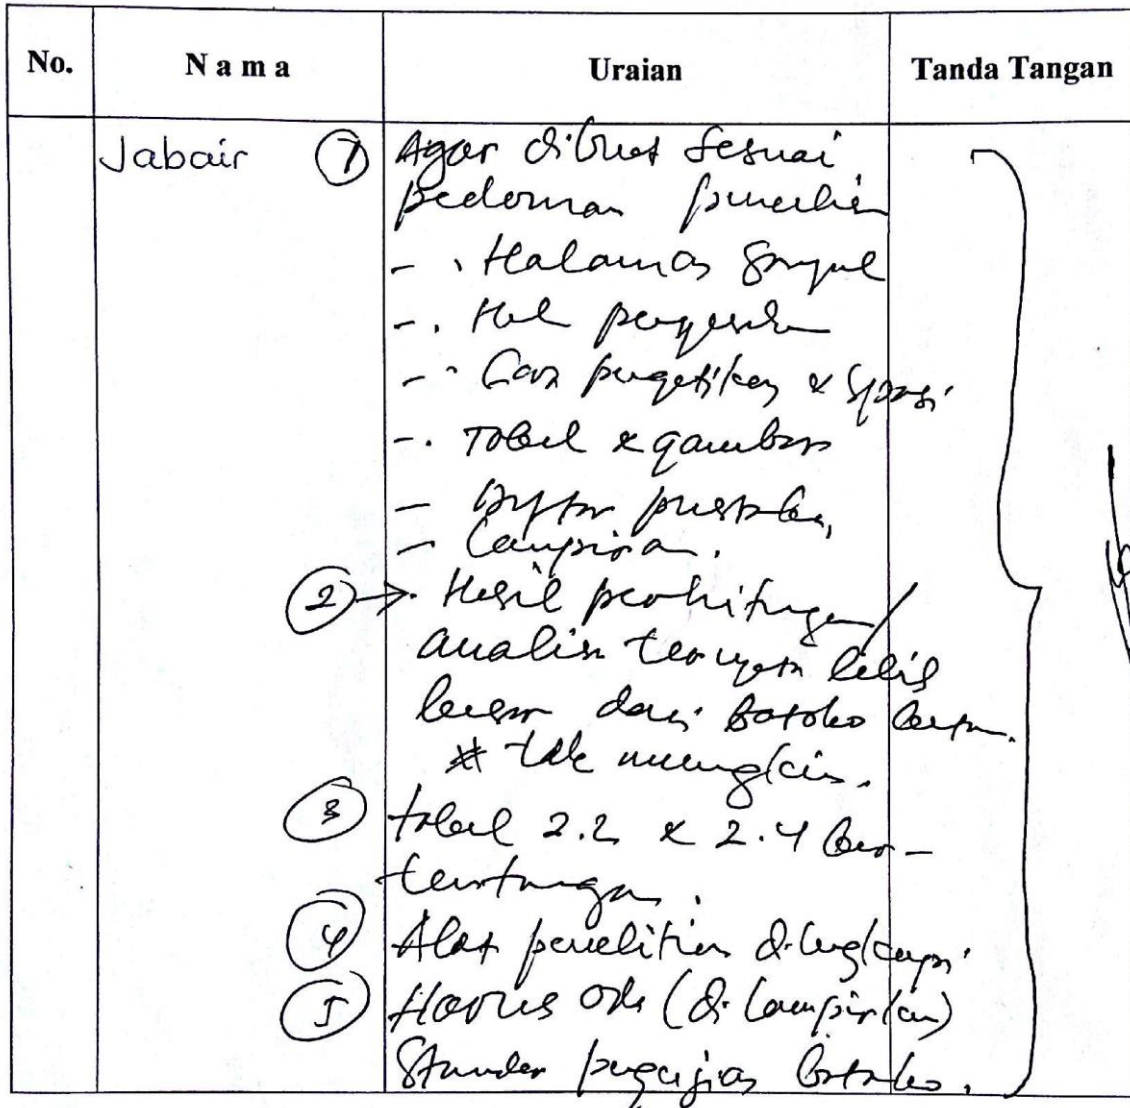 No. Nama Uraian Tanda Tangan
Jabair ① Agar dibuat sesuai
pedoman penelitian
- . Halaman Sampul
- . Hal pengesahan
- . Cara pengetikan & spasi
- . Tabel & gambar
- Daftar pustaka,
- Lampiran.
② → . Hasil perhitungan/
analisa ternyata lebih
besar dari batako beton.
tak mungkin.
③ tabel 2.2 & 2.4 ber-
tentangan.
④ Alat penelitian dilengkapi
⑤ Harus ada (dilampirkan)
Standar pengujian batako.